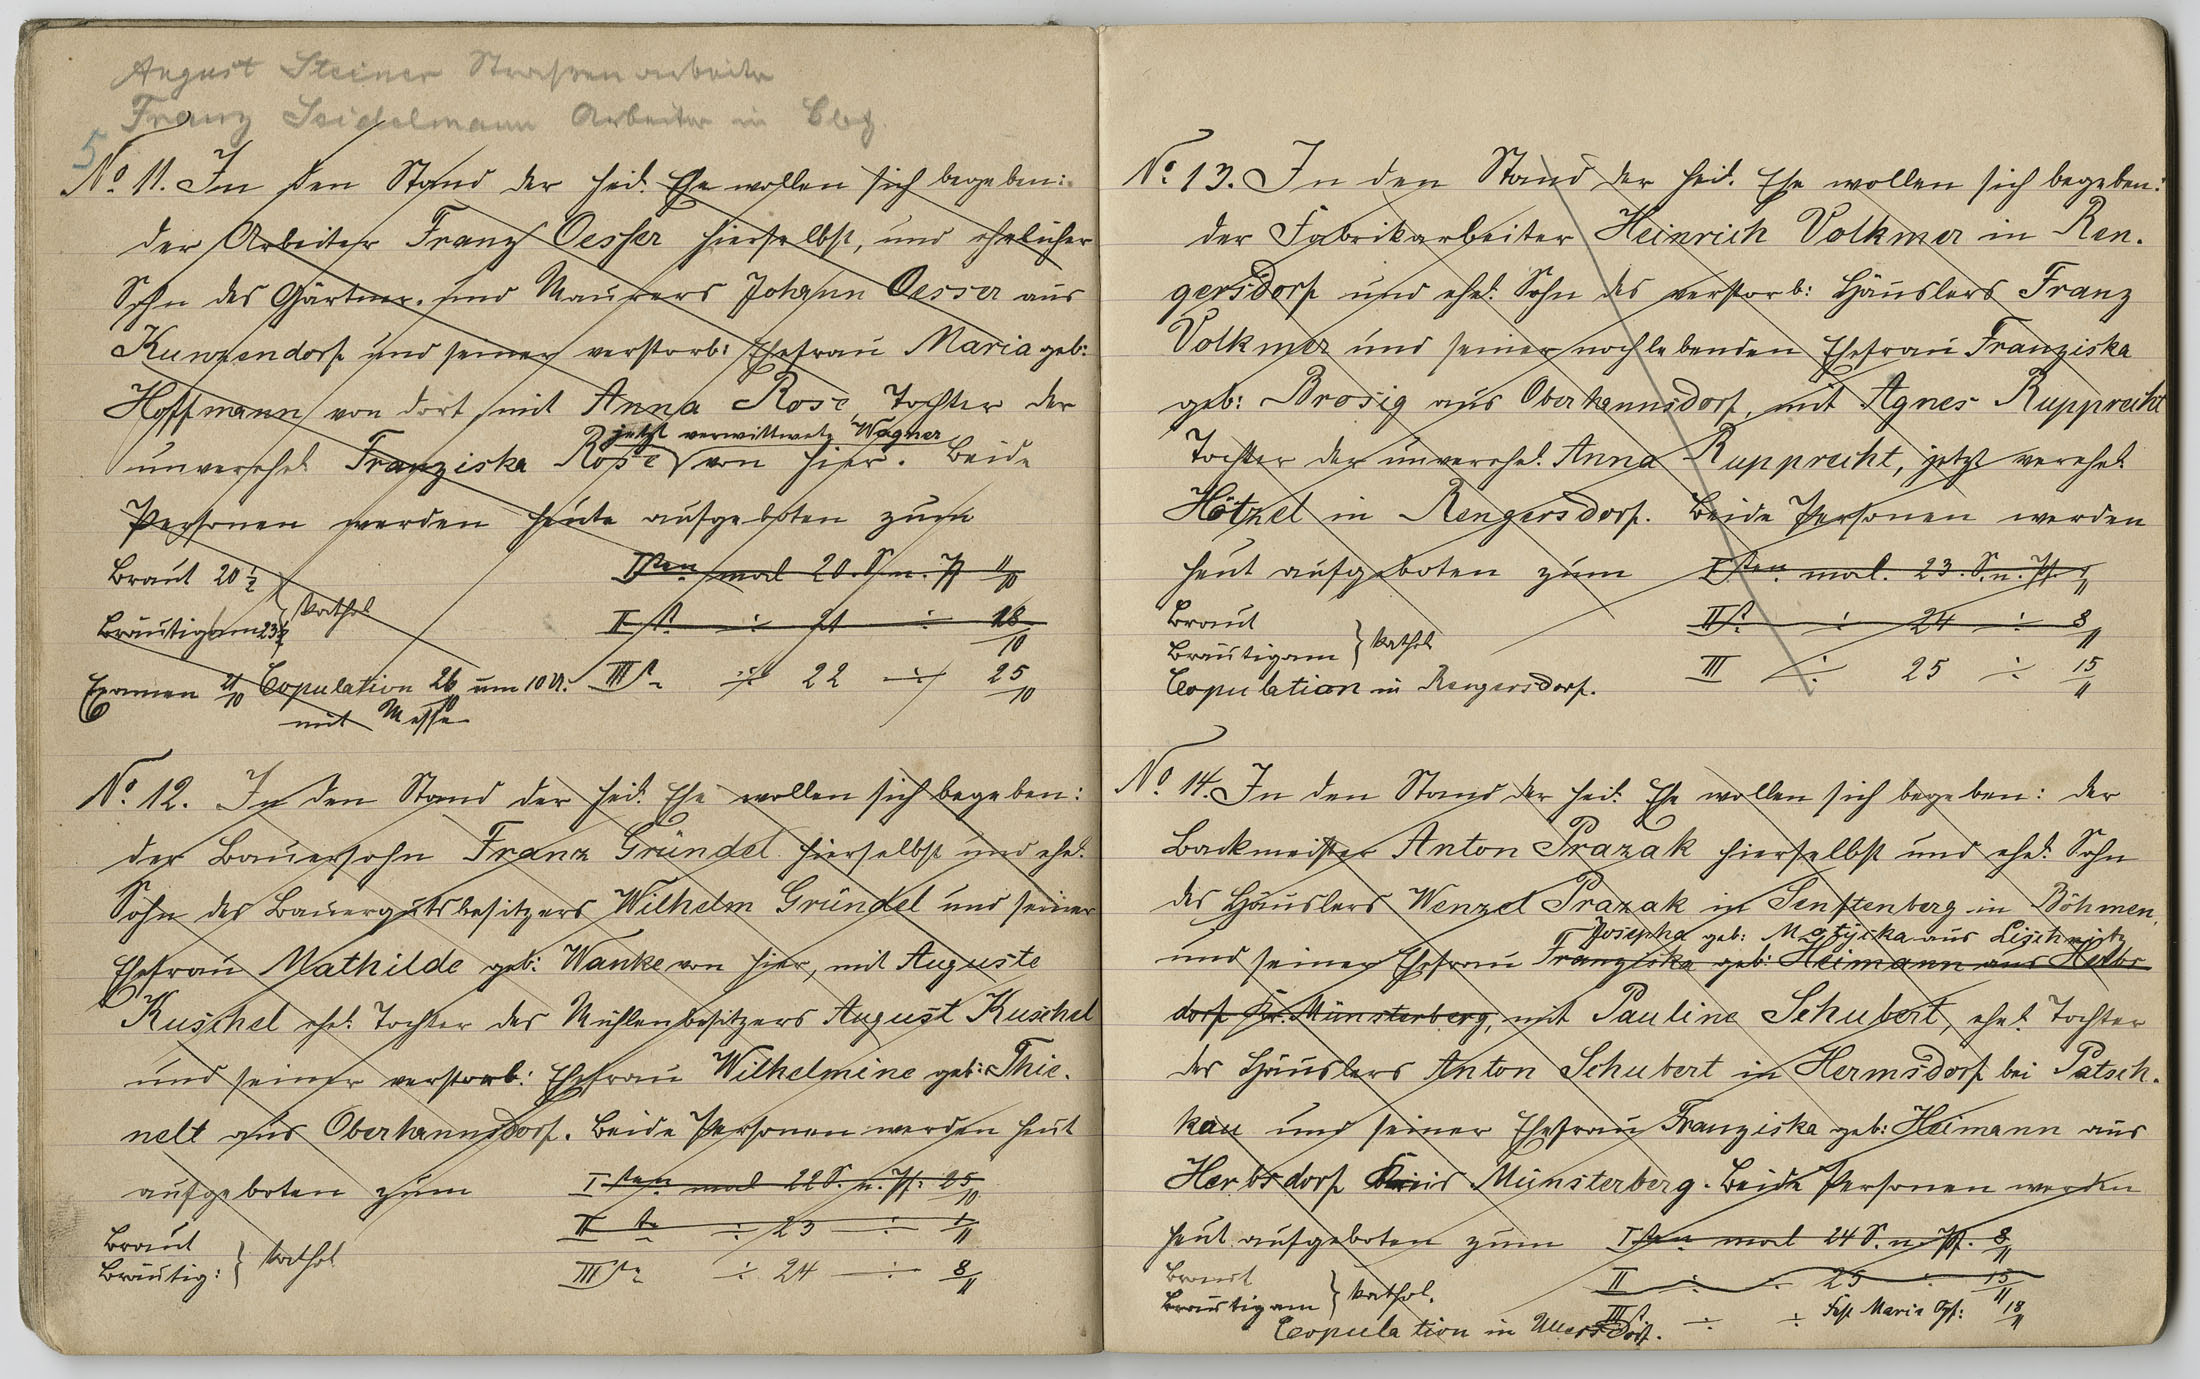 August Steiner Straßenarbeiter
Franz Seidelmann Arbeiter in Cbg.
5
No. 11. In den Stand der heil. Ehe wollen sich begeben:
der Arbeiter Franz Oesser hierselbst, und ehelicher
Sohn des Gärtner- und Maurers Johann Oesser aus
Kunzendorf und seiner verstorb: Ehefrau Maria geb:
Hoffmann von dort, mit Anna Rose, Tochter der
jetzt verwittwete Wagner
unverehel. Franziska Rose von hier. Beide
Personen werden heute aufgeboten zum
Braut 20 1/2
Iten mal 20. S. n. Pf. 11/10
Bräutigam 23 1/2 } kathol
II t. ÷ 21 ÷ 18/10
Examen 21/10 Copulation 26/10 um 10 U.
III t. ÷ 22 ÷ 25/10
mit Messe
No. 12. In den Stand der heil. Ehe wollen sich begeben:
der Bauersohn Franz Gründel hierselbst und ehel.
Sohn des Bauergutsbesitzers Wilhelm Gründel und seiner
Ehefrau Mathilde geb: Wanke von hier, mit Auguste
Kuschel ehel. Tochter des Mühlenbesitzers August Kuschel
und seiner verstorb: Ehefrau Wilhelmine geb: Thie-
nelt aus Oberhannsdorf. Beide Personen werden heut
aufgeboten zum Iten mal 22 S. n. Pf: 25/10
II te ÷ 23 ÷ 1/11
Braut
Bräutig: } kathol
III te ÷ 24 ÷ 8/11
No. 13. In den Stand der heil. Ehe wollen sich begeben:
der Fabrikarbeiter Heinrich Volkmer in Ren-
gersdorf und ehel. Sohn des verstorb: Häuslers Franz
Volkmer und seiner noch lebenden Ehefrau Franziska
geb: Brosig aus Oberhannsdorf, mit Agnes Rupprecht
Tochter der unverehel. Anna Rupprecht, jetzt verehel.
Hötzel in Rengersdorf. Beide Personen werden
heut aufgeboten zum Iten mal. 23. S. n. Pf. 1/11
Braut
II t. ÷ 24 ÷ 8/11
Bräutigam } kathol
III ÷ 25 ÷ 15/11
Copulation in Rengersdorf.
No. 14. In den Stand der heil. Ehe wollen sich begeben: der
Backmeister Anton Prazak hierselbst und ehel. Sohn
des Häuslers Wenzel Prazak in Senftenberg in Böhmen,
Josepha geb: Motyska aus
und seiner Ehefrau Franziska geb: Heimann aus Herbs
dorf Kr. Münsterberg, mit Pauline Schubert, ehel. Tochter
des Häuslers Anton Schubert in Hermsdorf bei Patsch-
kau und seiner Ehefrau Franziska geb: Heimann aus
Herbsdorf Kreis Münsterberg. Beide Personen werden
heut aufgeboten zum Iten mal 24 S. n. Pf. 8/11
Braut
II ÷ 25 ÷ 15/11
Bräutigam } kathol.
III t. ÷ ÷ Fest Mariä Opf: 18/11
Copulation in Ullersdorf.